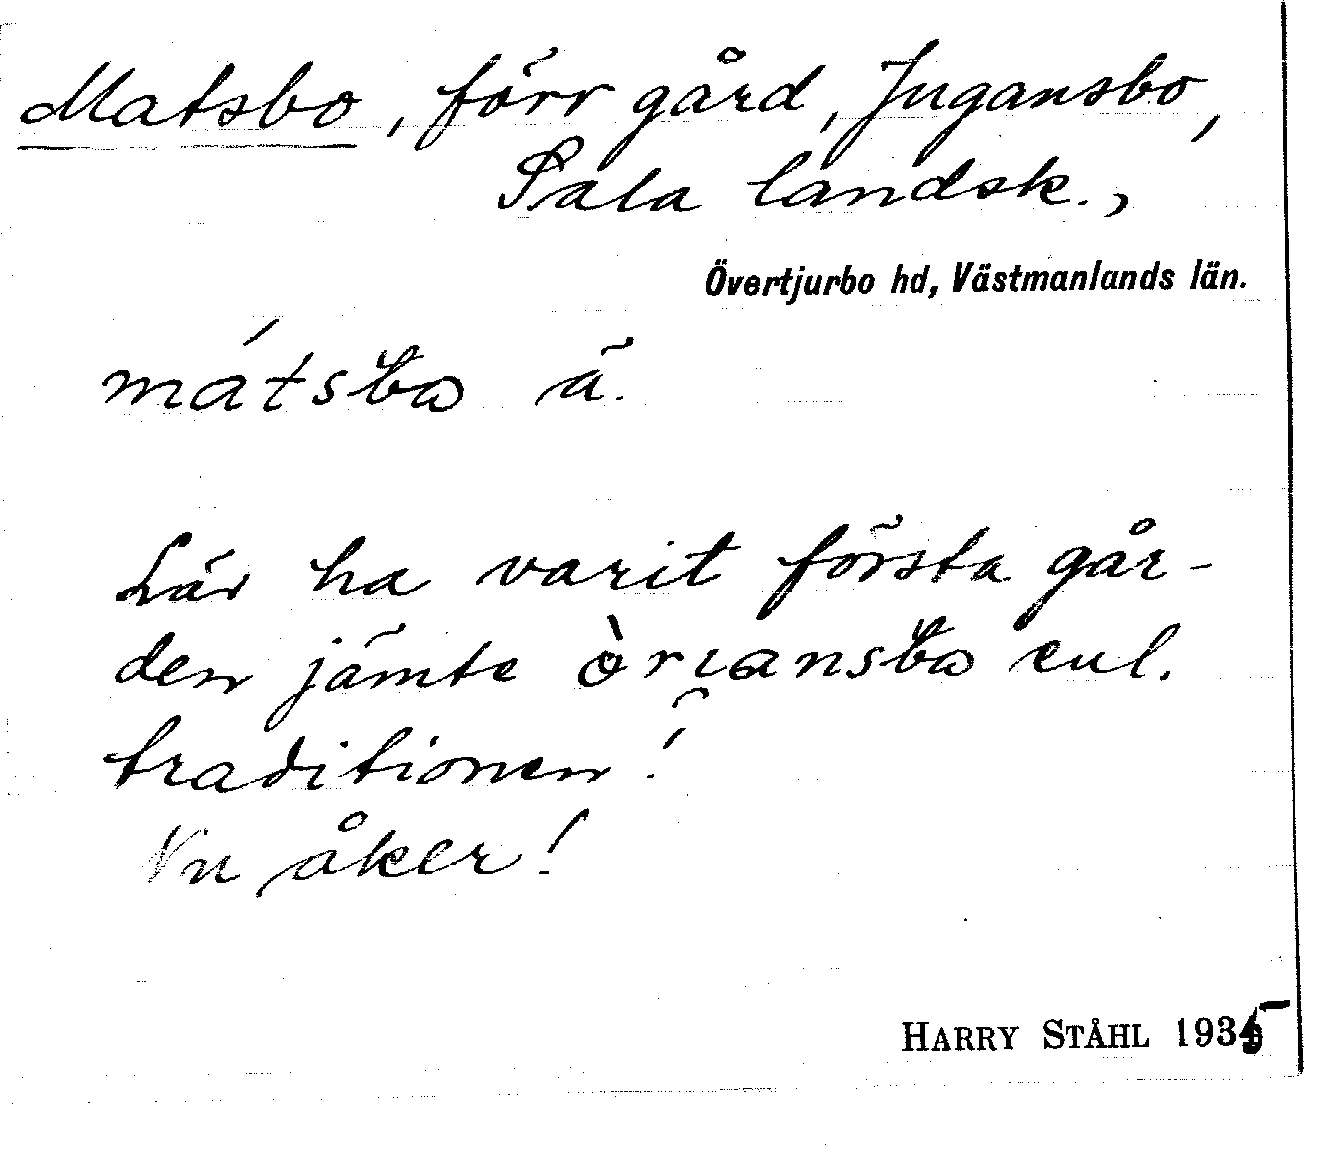 Matsbo, förr gård, Jugansbo,
Sala landsk.,
Övertjurbo hd, Västmanlands län.
mátsbω ä.
Lär ha varit första går-
den jämte enl.
traditionen!
Nu åker!
HARRY STÅHL 1935